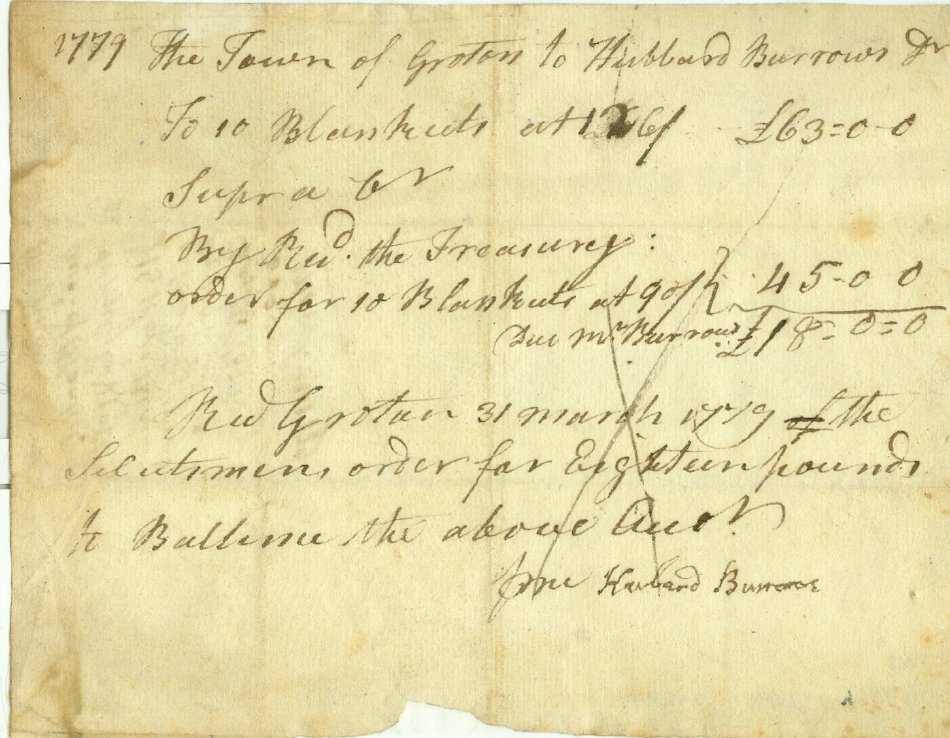 1779 The Town of Groton to Hubbard Burrows Dr
To 10 Blankuts at 126/ £63=0-0
Supra Cr
By Recd. the Treasurey:
order for 10 Blankuts at 90/ 45-0 0
Due Mr Burrows £18=0=0
Recd Groton 31 march 1779 of the
Selectsmens order for Eighteen pounds
to Ballence the above Acct.
pr me Hubbard Burrows